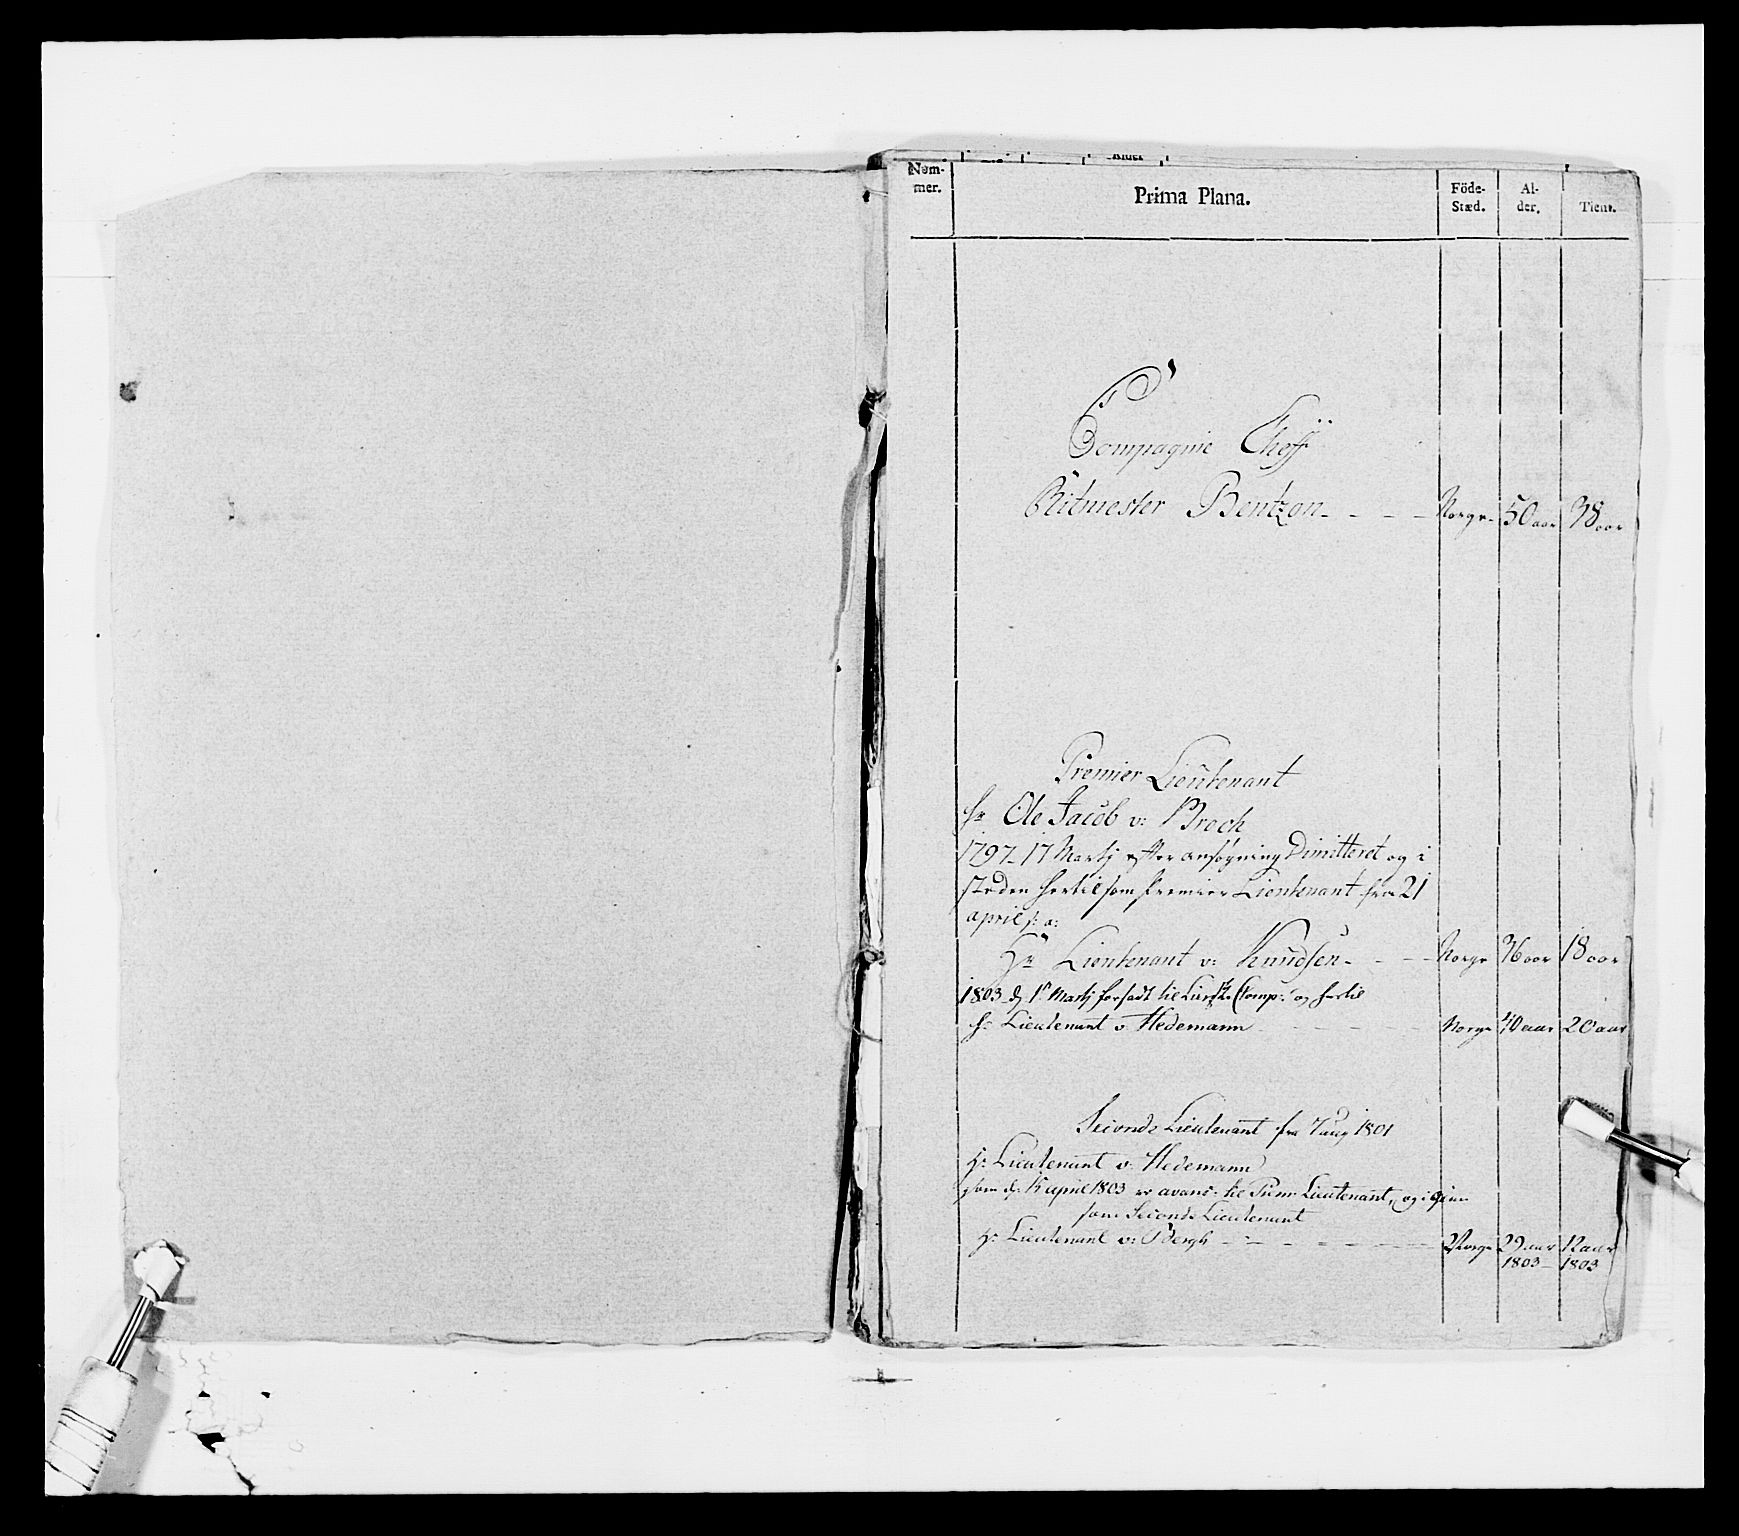 Nom-
mer.
Prima Plana.
Föde-
Stæd.
Al-
der.
Tient.
Compagnie Cheff
Ritmester Bentzon - - - - Norge 50 aar 38 aar
Premier Lieutenant
Hr Ole Jacob v: Broch
1797 - 17 Martj efter ansøgning Dimitteret og i
steden hertil som Premier Lieutenant fra 21
april s: a:
Hr Lieutenant v: Knudsen - - - Norge 36 aar 18 aar
1803 d. 1st Martj forsadt til Comp: og hertil
Hr Lieutenant v Hedemann - - - Norge 40 aar 20 aar
Seconde Lieutenant fra 7 aug 1801
Hr Lieutenant v: Hedemann
som d: 15 april 1803 er avanc: til Prem Lieutenant, og igien
som Seconde Lieutenant
Hr Lieutenant v: Bergh - - - - Norge 29 aar 12 aar
1803 - 1803